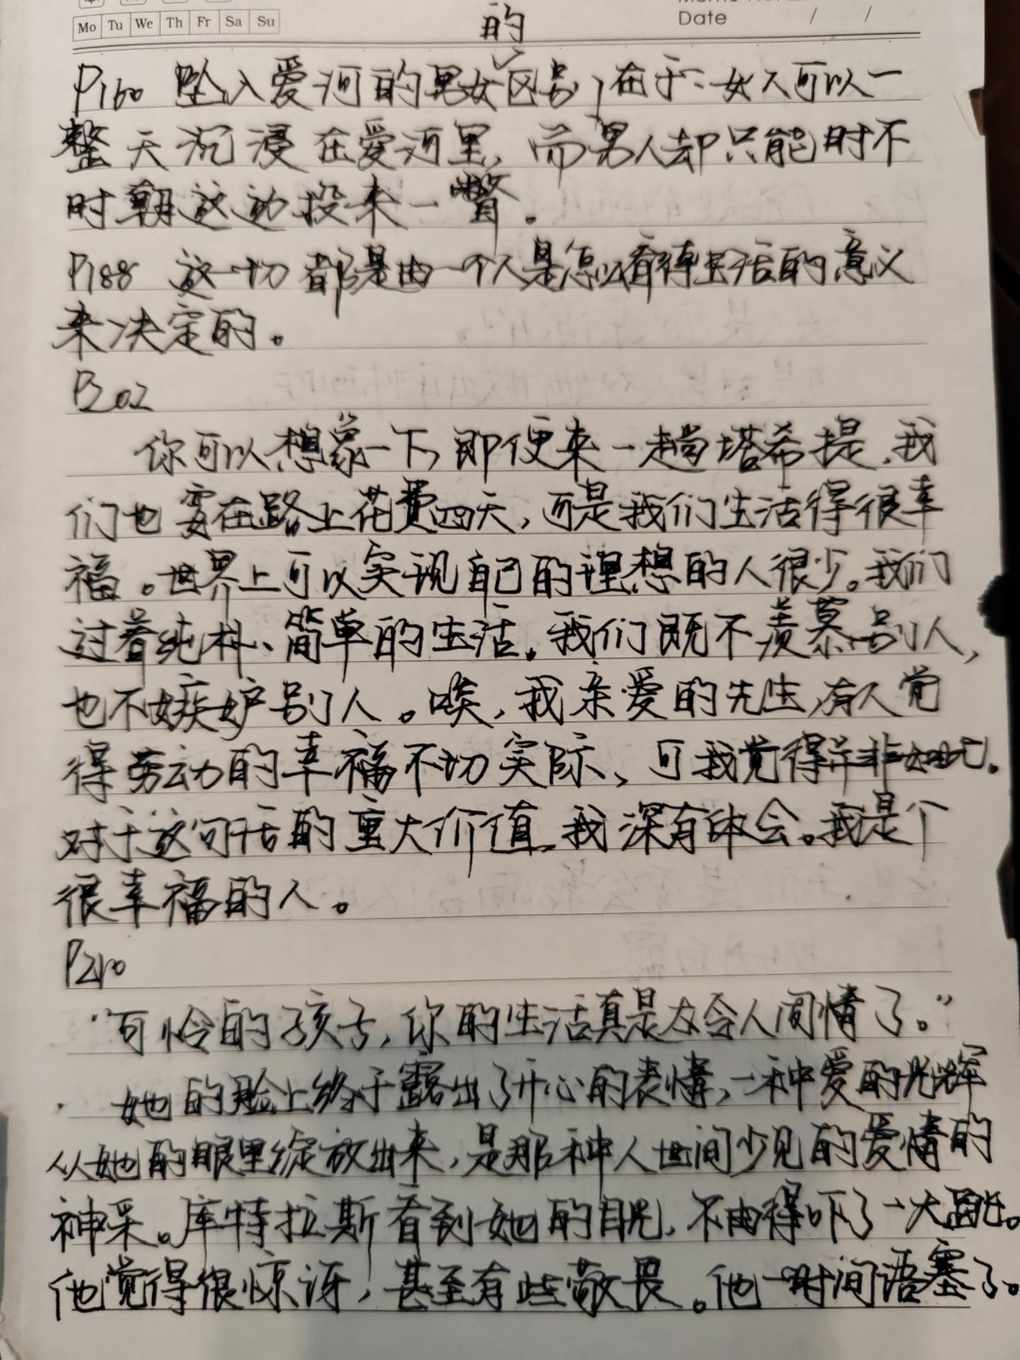 Mo Tu We Th Fr Sa Su
Date / /
的
P160 坠入爱河的男女区别,在于:女人可以一
整天沉浸在爱河里,而男人却只能时不
时朝这边投来一瞥。
P188 这一切都是由一个人是怎么看待生活的意义
来决定的。
P202
你可以想象一下,即便来一趟塔希提,我
们也要在路上花费四天,可是我们生活得很幸
福。世界上可以实现自己的理想的人很少。我们
过着纯朴、简单的生活。我们既不羡慕别人,
也不嫉妒别人。唉,我亲爱的先生,有人觉
得劳动的幸福不切实际,可我觉得并非如此。
对于这句话的重大价值,我深有体会。我是个
很幸福的人。
P210
“可怜的孩子,你的生活真是太令人同情了。”
她的脸上终于露出了开心的表情,一种爱的光辉
从她的眼里绽放出来,是那种人世间少见的爱情的
神采。库特拉斯看到她的目光,不由得吓了一大跳。
他觉得很惊讶,甚至有些敬畏。他一时间语塞了。